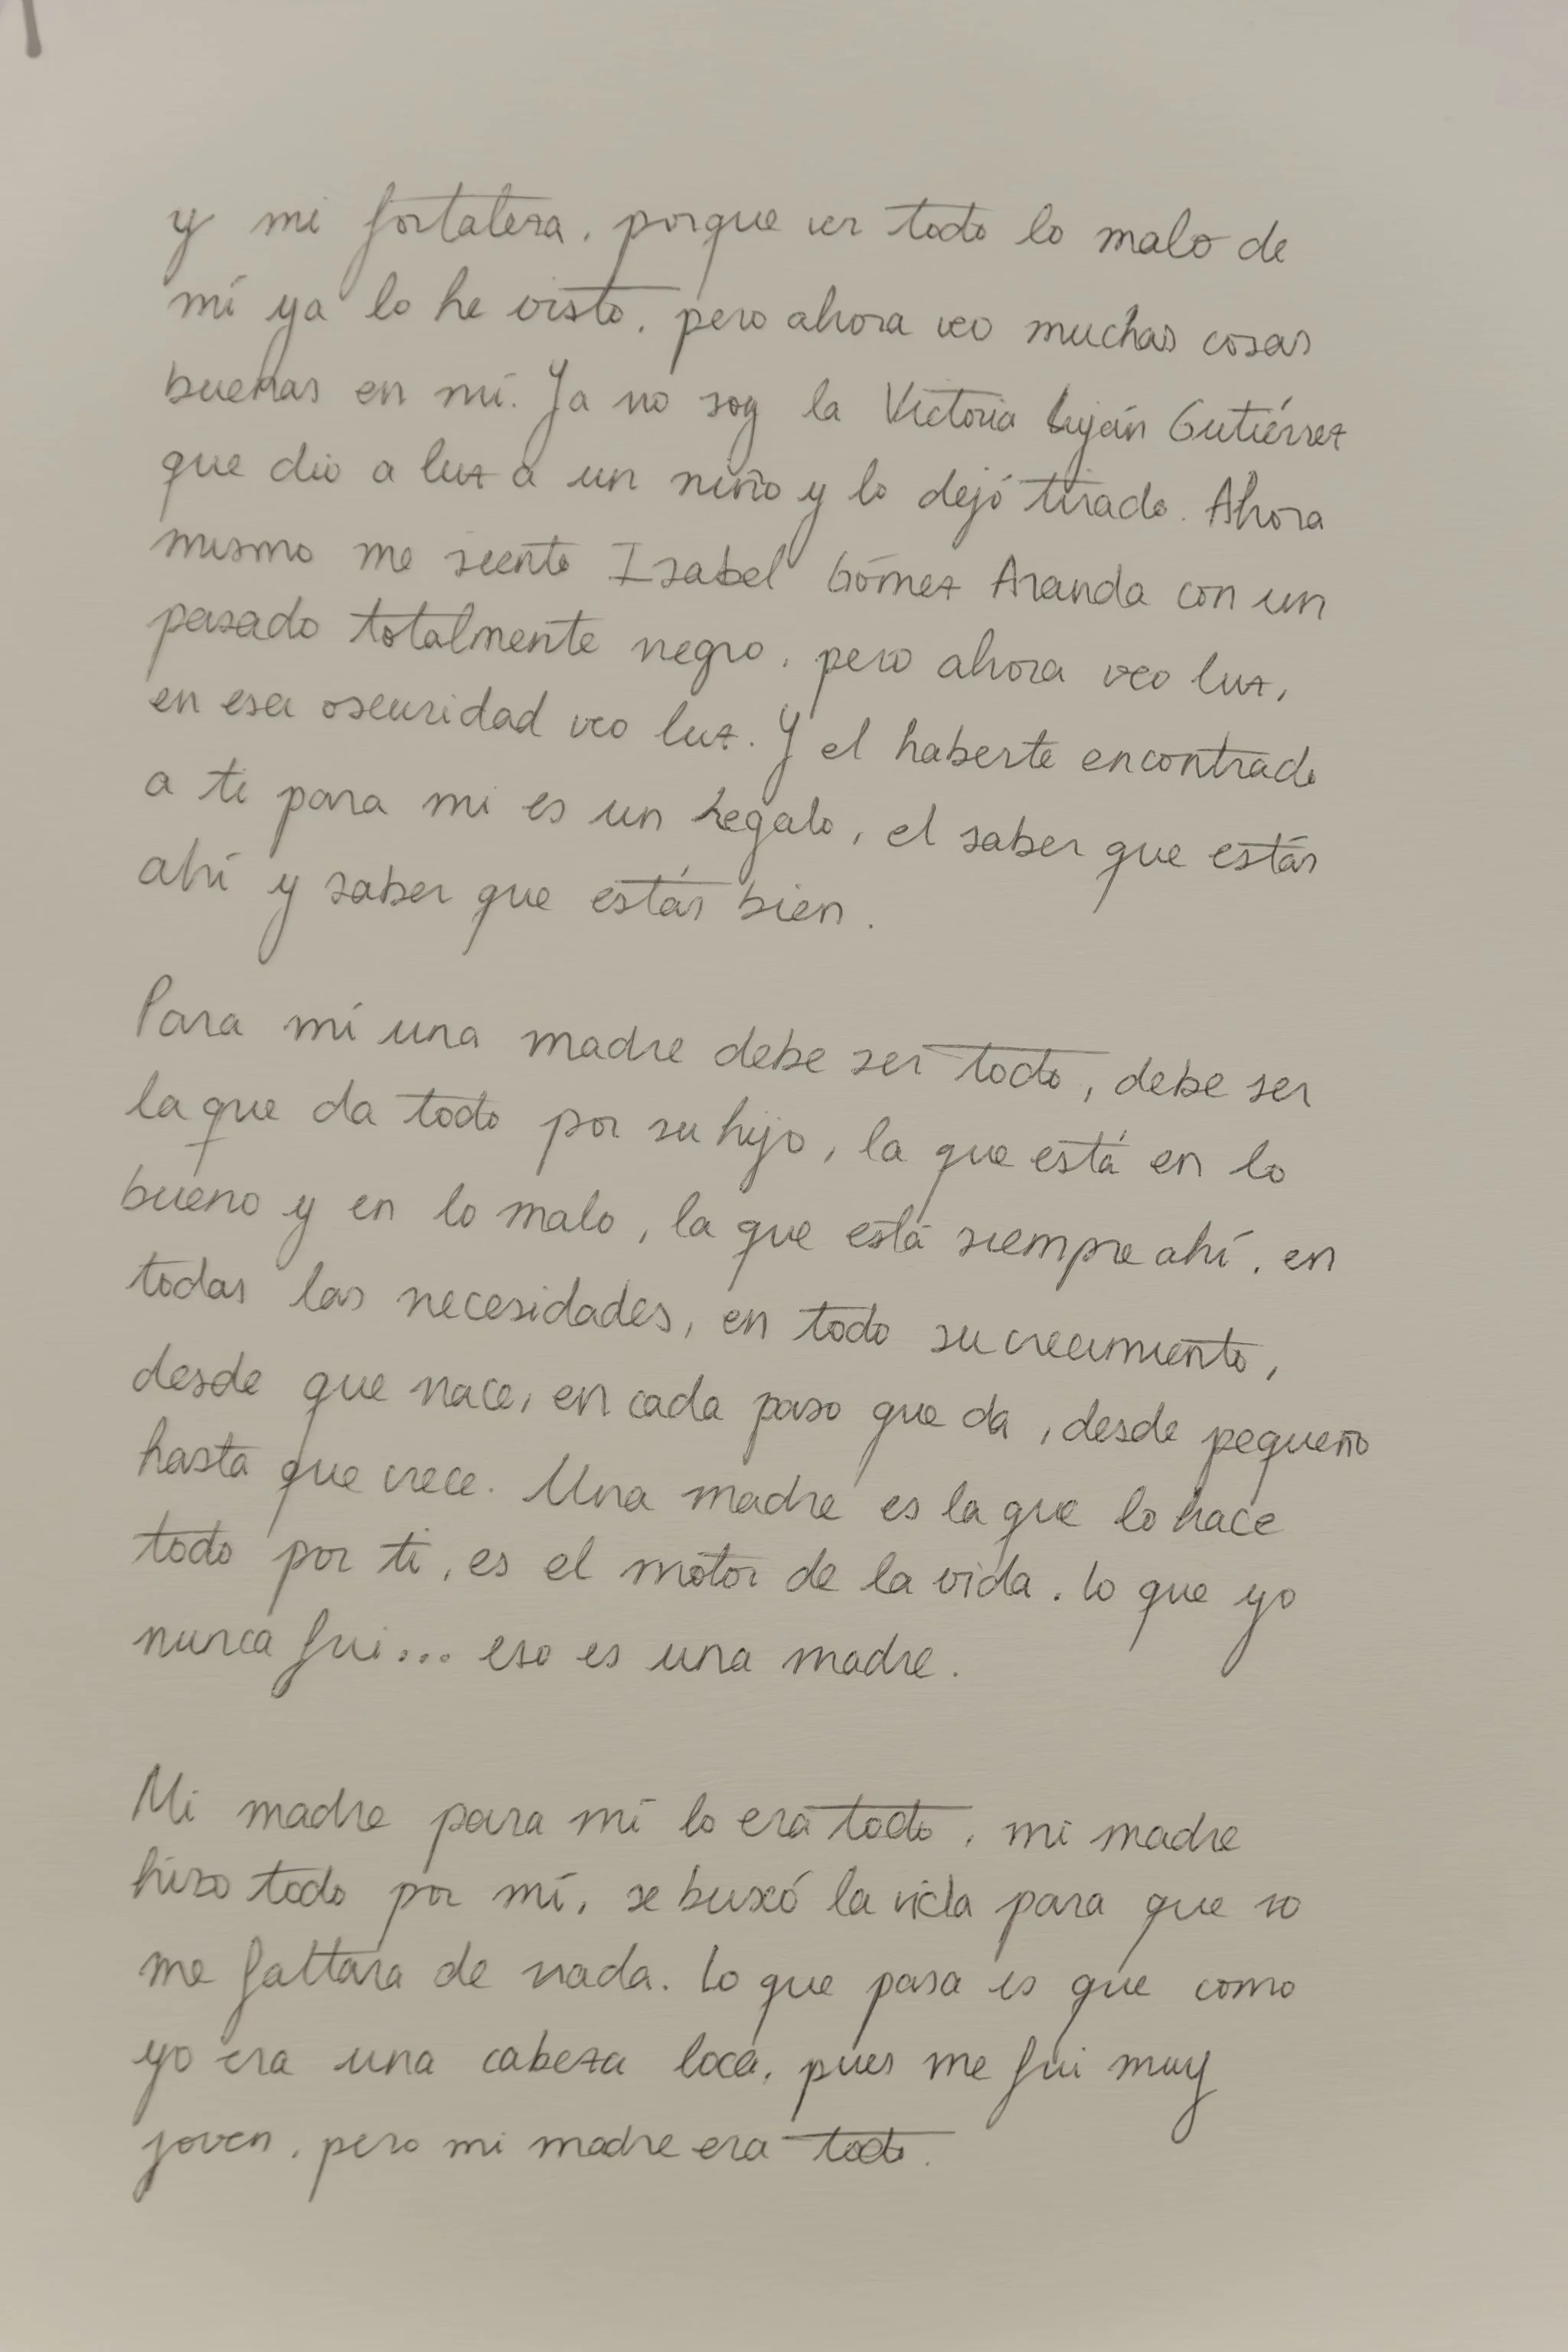 y mi fortaleza, porque ver todo lo malo de
mí ya lo he visto, pero ahora veo muchas cosas
buenas en mí. Ya no soy la Victoria Luján Gutiérrez
que dio a luz a un niño y lo dejó tirado. Ahora
mismo me siento Isabel Gómez Aranda con un
pasado totalmente negro, pero ahora veo luz,
en esa oscuridad veo luz. Y el haberte encontrado
a ti para mi es un regalo, el saber que estás
ahí y saber que estás bien.
Para mí una madre debe ser todo, debe ser
la que da todo por su hijo, la que está en lo
bueno y en lo malo, la que está siempre ahí, en
todas las necesidades, en todo su crecimiento,
desde que nace, en cada paso que da, desde pequeño
hasta que crece. Una madre es la que lo hace
todo por ti, es el motor de la vida. Lo que yo
nunca fui... eso es una madre.
Mi madre para mí lo era todo, mi madre
hizo todo por mí, se buscó la vida para que no
me faltara de nada. Lo que pasa es que como
yo era una cabeza loca, pues me fui muy
joven, pero mi madre era todo.